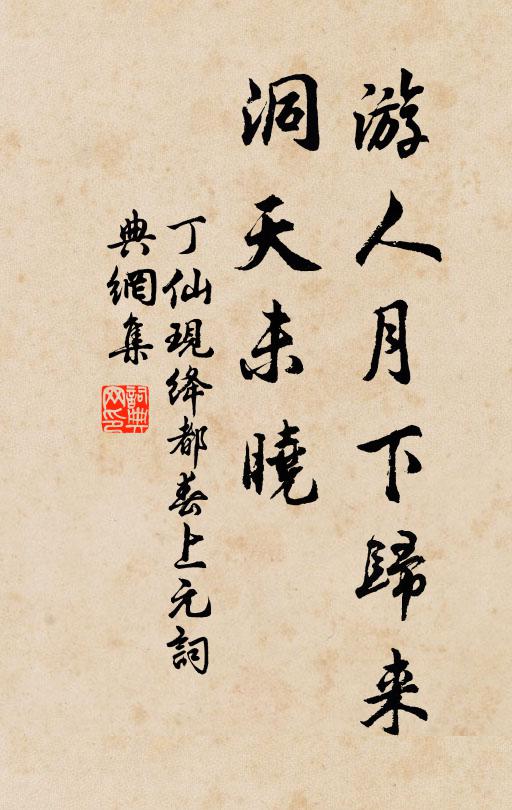 游人月下歸来
洞天未曉
丁仙現絳都春上元詞
典網集
詞典網印